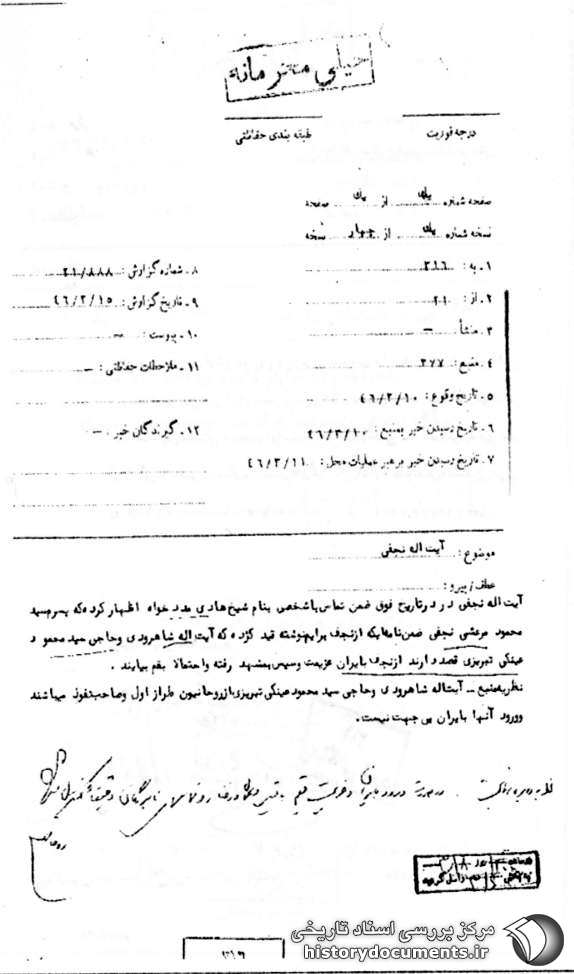 خیلی محرمانه
درجه فوریت
طبقه بندی حفاظتی
صفحه شماره یک از یک صفحه
نسخه شماره یک از چهار نسخه
۱ـ به : ۳۱۶
۲ـ از : ۲۱
۳ـ منشأ : ـ
۴ـ منبع : ۲۷۷
۵ـ تاریخ وقوع : ۴۶/۳/۱۰
۶ـ تاریخ رسیدن خبر بمنبع : ۴۶/۳/۱۰
۷ـ تاریخ رسیدن خبر برهبر عملیات محل : ۴۶/۳/۱۱
۸ـ شماره گزارش : ۲۱/۸۸۸
۹ـ تاریخ گزارش : ۴۶/۳/۱۵
۱۰ـ پیوست : ـ
۱۱ـ ملاحظات حفاظتی : ـ
۱۲ـ گیرندگان خبر : ـ
موضوع : آیت اله نجفی
عطف / پیرو :
آیت اله نجفی در درتاریخ فوق ضمن تماس باشخصی بنام شیخ هادی مدد خواه اظهار کرده که پسرم سید
محمود مرعشی نجفی ضمن نامه ایکه ازنجف برایم نوشته قید کرده که آیت اله شاهرودی وحاجی سید محمود
عینکی تبریزی قصد دارند ازنجف بایران عزیمت وسپس بمشهد رفته واحتمالا بقم بیایند .
نظریه منبع ـ آیت اله شاهرودی وحاجی سید محمود عینکی تبریزی از روحانیون طراز اول وصاحب نفوذ میباشند
وورود آنها بایران بی جهت نیست .
مرکز بررسی اسناد تاریخی
historydocuments.ir